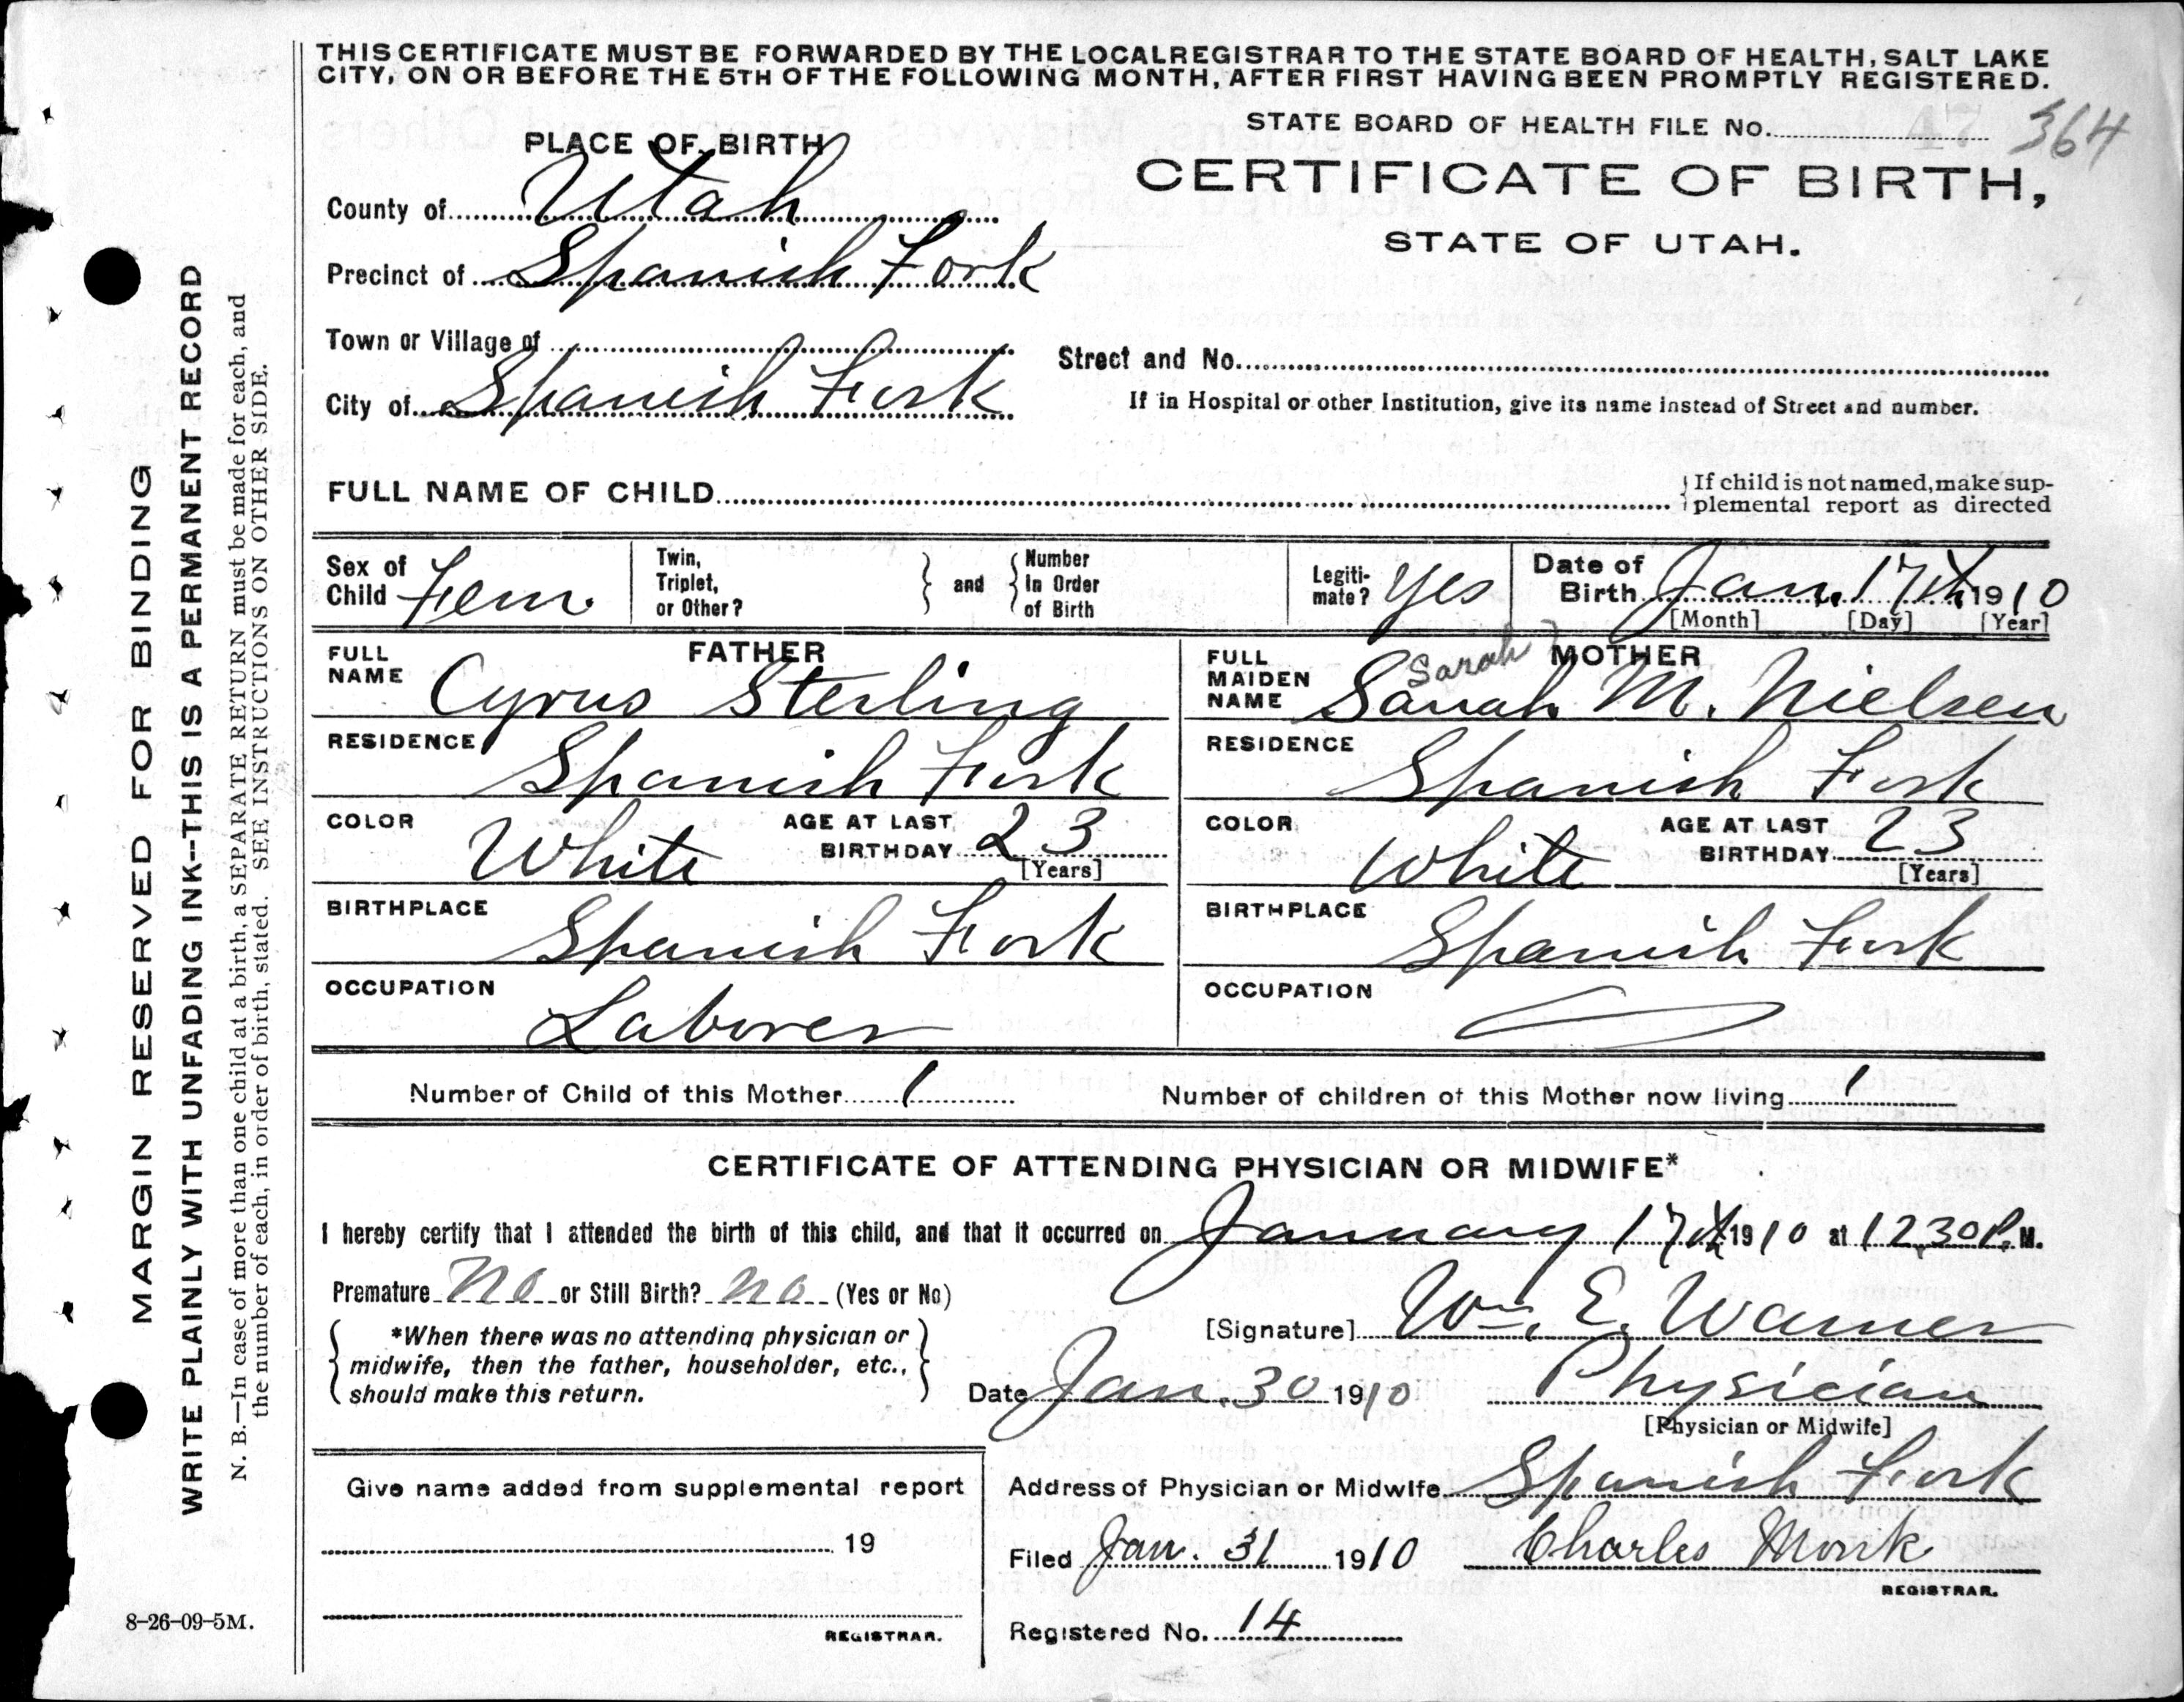 THIS CERTIFICATE MUST BE FORWARDED BY THE LOCAL REGISTRAR TO THE STATE BOARD OF HEALTH, SALT LAKE
CITY, ON OR BEFORE THE 5TH OF THE FOLLOWING MONTH, AFTER FIRST HAVING BEEN PROMPTLY REGISTERED.
STATE BOARD OF HEALTH FILE No. 364
PLACE OF BIRTH
CERTIFICATE OF BIRTH,
County of Utah
STATE OF UTAH.
Precinct of Spanish Fork
Town or Village of
Street and No.
City of Spanish Fork
If in Hospital or other Institution, give its name instead of Street and number.
FULL NAME OF CHILD
If child is not named, make sup-
plemental report as directed
Sex of Child Fem.
Twin, Triplet, or Other?
and
Number In Order of Birth
Legiti-mate? Yes
Date of Birth Jan. 17th 1910
[Month] [Day] [Year]
FATHER
FULL NAME Cyrus Sterling
RESIDENCE Spanish Fork
COLOR White
AGE AT LAST BIRTHDAY 23
[Years]
BIRTHPLACE Spanish Fork
OCCUPATION Laborer
Sarah
MOTHER
FULL MAIDEN NAME Sarah M. Nielsen
RESIDENCE Spanish Fork
COLOR White
AGE AT LAST BIRTHDAY 23
[Years]
BIRTHPLACE Spanish Fork
OCCUPATION
Number of Child of this Mother 1
Number of children of this Mother now living 1
CERTIFICATE OF ATTENDING PHYSICIAN OR MIDWIFE*
I hereby certify that I attended the birth of this child, and that it occurred on January 17th 1910 at 12,30 P. M.
Premature No or Still Birth? No (Yes or No)
[Signature] Wm. E. Warner
*When there was no attending physician or
midwife, then the father, householder, etc.,
should make this return.
Date Jan. 30 1910
Physician
[Physician or Midwife]
Give name added from supplemental report
19
REGISTRAR.
Address of Physician or Midwife Spanish Fork
Filed Jan. 31 1910
Charles Monk
REGISTRAR.
Registered No. 14
8-26-09-5M.
MARGIN RESERVED FOR BINDING
WRITE PLAINLY WITH UNFADING INK--THIS IS A PERMANENT RECORD
N. B.—In case of more than one child at a birth, a SEPARATE RETURN must be made for each, and
the number of each, in order of birth, stated. SEE INSTRUCTIONS ON OTHER SIDE.